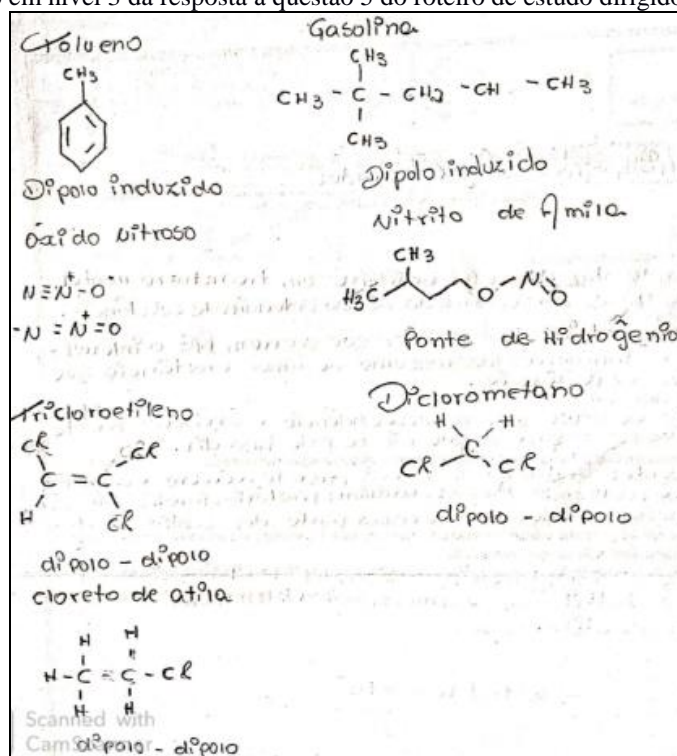 em nível 3 da resposta à questão 5 do roteiro de estudo dirigido
Tolueno
CH3
Dipolo induzido
Óxido Nitroso
N≡N⁺-O⁻
-N=N⁺=O
Tricloroetileno
Cl Cl
C = C
H Cl
dipolo - dipolo
cloreto de atila
H H
H-C = C - Cl
H H
dipolo - dipolo
Gasolina
CH3
CH3 - C - CH2 - CH - CH3
CH3
Dipolo induzido
Nitrito de Amila
CH3
H3C O N O
Ponte de Hidrogênio
Diclorometano
H H
C
Cl Cl
dipolo - dipolo
Scanned with
CamScanner